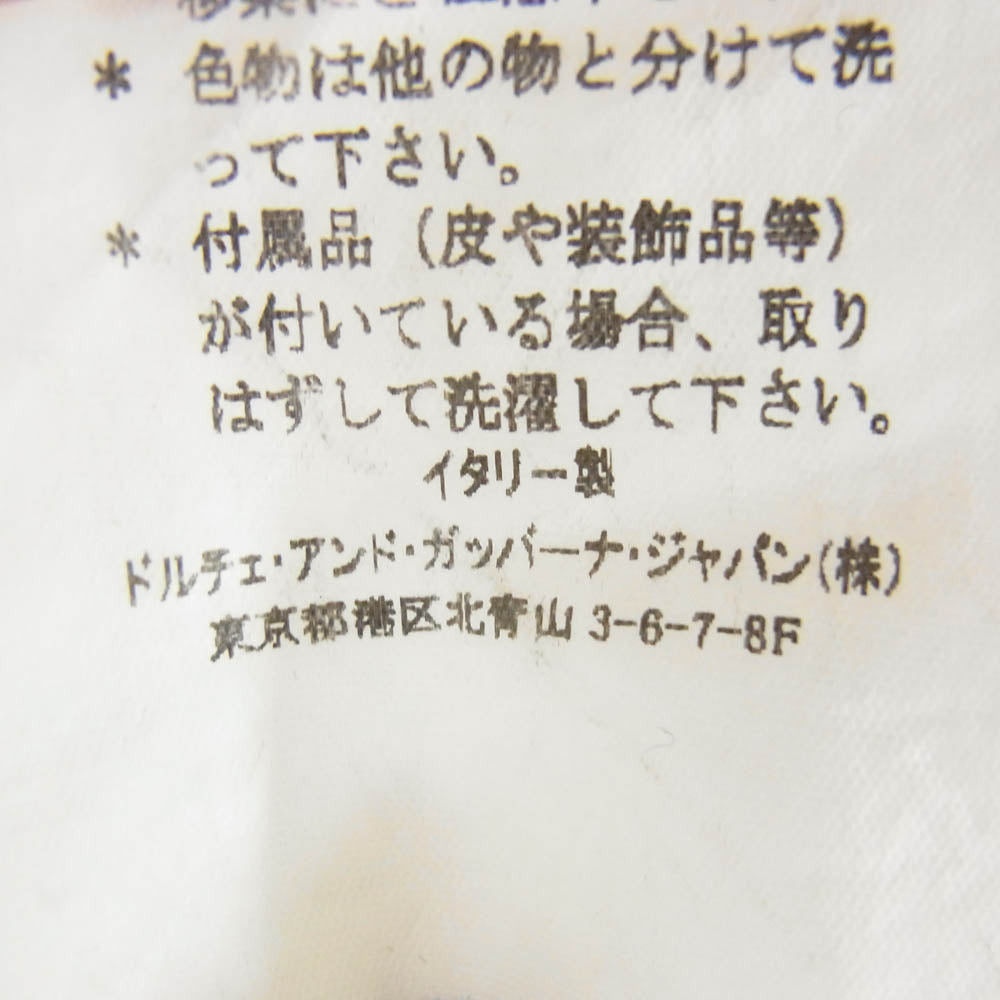 * 色物は他の物と分けて洗
って下さい。
* 付属品（皮や装飾品等）
が付いている場合、取り
はずして洗濯して下さい。
イタリー製
ドルチェ・アンド・ガッバーナ・ジャパン(株)
東京都港区北青山3-6-7-8F